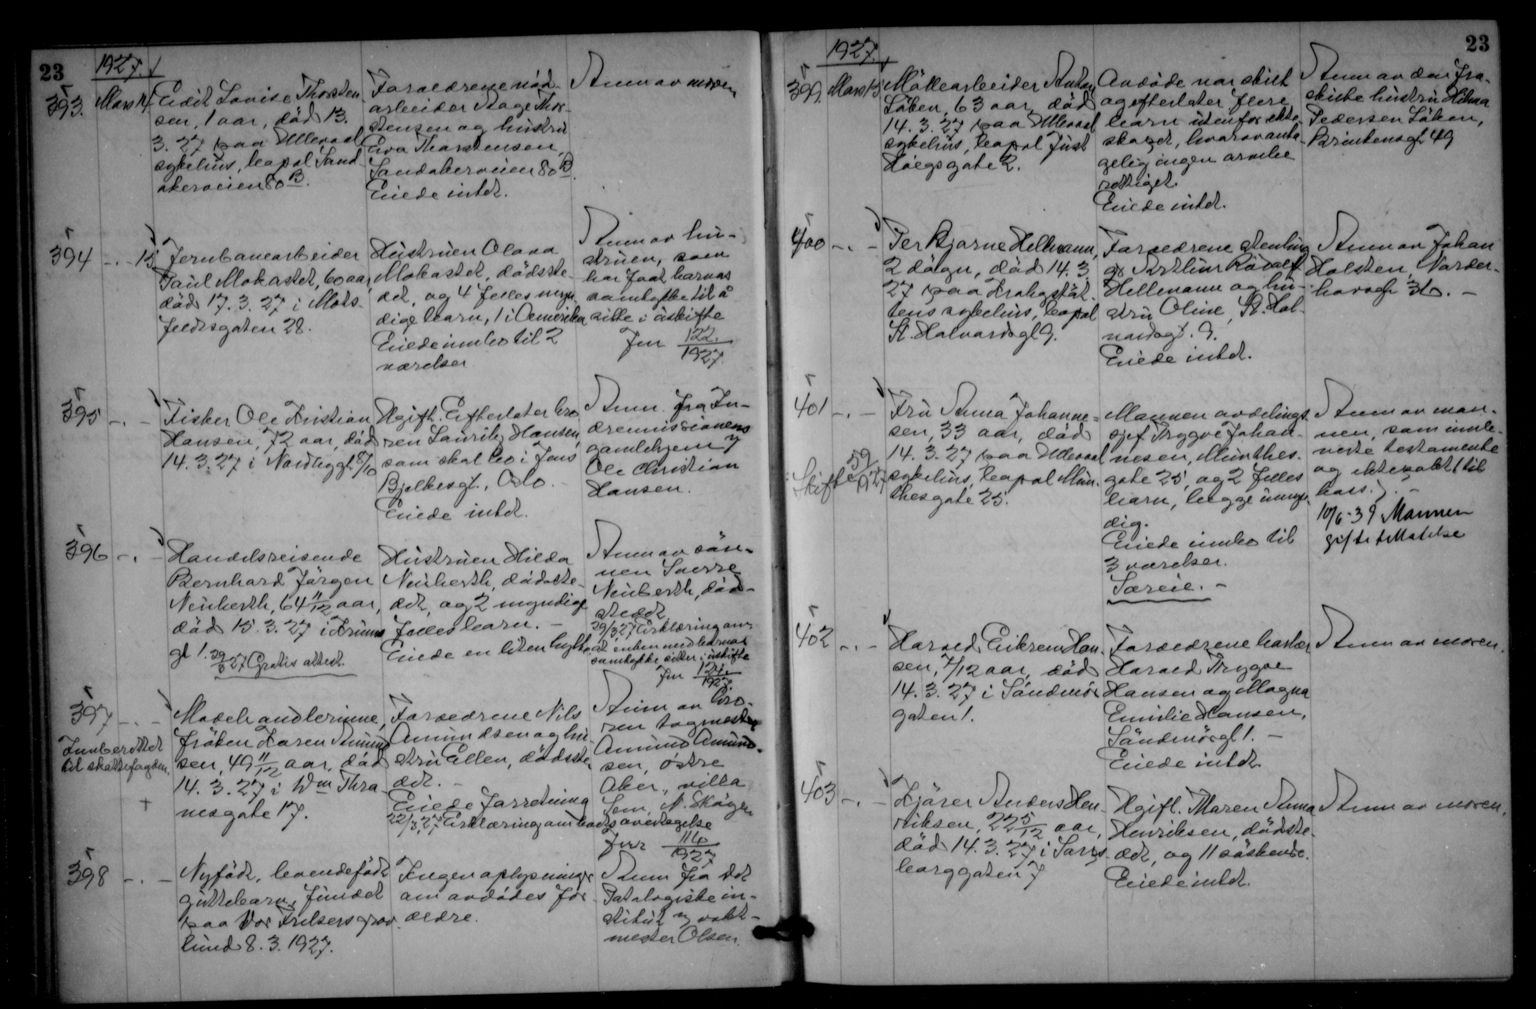 23
1927.
393. Mars 14. Edit Lovise Thorsten-
sen, 1 aar, död 13.
3. 27 paa Ullevaal
sykehus, bopæl Sand-
akerveien 80 B.
Forældrene
arbeider Aage Thor-
stensen og hustru
Eva Thorstensen,
Sandakerveien 80 B.
Eiede intet.
Anm av moren
394 -.- 15 Jernbanearbeider
Paul Mokastet, 60 aar,
död 17. 3. 27 i Mots-
feldtsgaten 28.
Hustruen Olava
Mokastet, dödste-
det, og 4 felles myn-
dige barn, 1 i Amerika
Eiede innbo til 2
værelser
Anm av hu-
struen, som
har faat barnas
samtykke til å
sitte i uskifte
Jnr 122/1927
395 -.- Fisker Ole Kristian
Hansen, 72 aar, död
14. 3. 27 i Nordbyggt. 8/10
Ugift. Efterlater bro
ren Laurits Hansen,
som skal bo i Jens
Bjelkesgt, Oslo.
Eiede intet.
Anm. fra In-
dremissionens
gamlehjem v/
Ole Christian
Hansen.
396 -.- Handelsreisende
Bernhard Jörgen
Neuberth, 64 11/12 aar,
död 15. 3. 27 i Kruses
gt 1. 29/3 27 Gratis attest.
Hustruen Hilda
Neuberth, dödste-
det, og 2 myndige
felles barn. -
Eiede en liten hytte
Anm av sön-
nen Sverre
Neuberth, död-
stedet
29/3 27 Erklæring om
at enken med barnas
samtykke sitter i uskifte
Jnr 124/1927
397 -.- Motehandlerinne,
fröken Karen Amund
sen, 49 11/12 aar, död
14. 3. 27 i Wm Thra-
nesgate 17.
Innberettet
til skattefogden
+
Forældrene Nils
Amundsen og hu-
stru Ellen, dödste-
det. -
Eiede forretning
22/3 27 Erklæring om boets overtagelse
Anm av bro-
ren togmester
Amund Amund-
sen, östre
Aker, villa
Lem, N. Skögen
Jnr 116/1927
398 -.- Nyfödt, levendefödt
guttebarn, fundet
paa Vor Frelsers grav-
lund 8. 3. 1927.
Ingen oplysninger
om avdödes for-
ældre.
Anm fra det
Patologiske in-
stitut v/ vakt-
mester Olsen.
23
1927.
399. Mars 15 Möllearbeider Anton
Löken, 63 aar, död
14. 3. 27 paa Ullevaal
sykehus, bopæl Just
Höegsgate 2.
Avdöde var skilt
og efterlater flere
barn utenfor ekte-
skapet, hvorav anta-
gelig ingen arvebe
rettiget.
Eiede intet.
Anm av den fra-
skilte hustru Hilma
Pedersen Löken,
Brinkensgt 49
400 -.- Per Bjarne Hellmann,
2 dögn, död 14. 3.
27 paa Krohgstöt-
tens sykehus, bopæl
St. Halvardsgt 9.
Forældrene
Arthur Rudolf
Hellmann og hu-
stru Oline, St. Hal-
vardsgt. 9.
Eiede intet.
Anm av Johan
Holsten, Norder-
hovsgt 30. -
401 -.- Fru Anna Johanne-
sen, 33 aar, död
14. 3. 27 paa Ullevaal
sykehus, bopæl Mun-
thesgate 25.
Skifte 59/1927
Mannen avdelings-
sjef Trygve Johan-
nesen, Munthes-
gate 25, og 2 felles
barn, begge umyn-
dig.
Eiede innbo til
3 værelser.
Særeie. -
Anm av man-
nen, som innle-
verte testamente
og ektepakt til
bars.). -
10/6-39 Mannen
402 -.- Harald Eiksem Han-
sen, 7/12 aar, död
14. 3. 27 i Söndmörs
gaten 1.
Forældrene
Harald Trygve
Hansen og Magna
Emilie Hansen,
Söndmörsgt 1. -
Eiede intet.
Anm av moren.
403 -.- Kjörer Anders Hen-
riksen, 22 5/12 aar,
död 14. 3. 27 i Sars-
borggaten 7
Ugift. Maren Anna
Henriksen, dödste-
det, og 11 söskende.
Eiede intet.
Anm av moren.